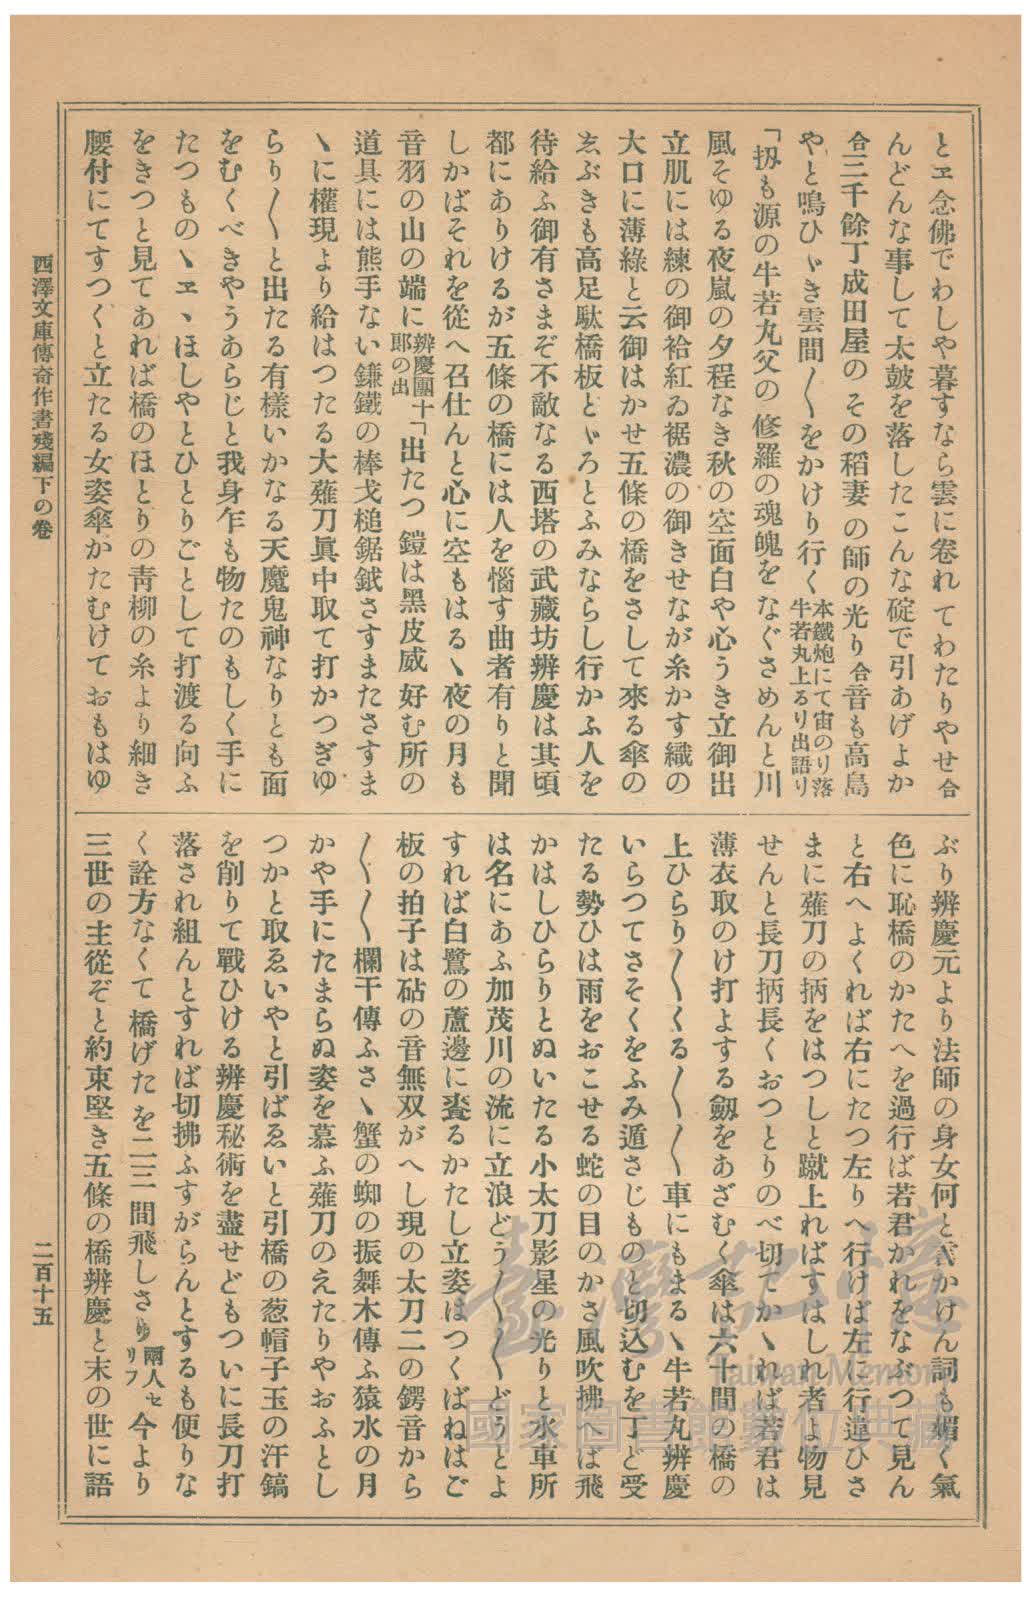 とヱ念佛でわしや暮すなら雲に卷れてわたりやせ合
んどんな事して太皷を落したこんな碇で引あげよか
合三千餘丁成田屋のその稻妻の師の光り合音も高島
やと鳴ひゞき雲間〱をかけり行く本鐵炮にて宙のり落牛若丸上るり出語り
「扨も源の牛若丸父の修羅の魂魄をなぐさめんと川
風そゆる夜嵐の夕程なき秋の空面白や心うき立御出
立肌には練の御袷紅ゐ裾濃の御きせなが糸かす織の
大口に薄綠と云御はかせ五條の橋をさして來る傘の
ゑぶきも高足駄橋板とゞろとふみならし行かふ人を
待給ふ御有さまぞ不敵なる西塔の武藏坊辨慶は其頃
都にありけるが五條の橋には人を惱す曲者有りと聞
しかばそれを從へ召仕んと心に空もはるゝ夜の月も
音羽の山の端に辨慶團十郎の出「出たつ鎧は黑皮威好む所の
道具には熊手ない鎌鐵の棒戈槌鋸鉞さすまたさすま
ゝに權現より給はつたる大薙刀眞中取て打かつぎゆ
らり〱と出たる有樣いかなる天魔鬼神なりとも面
をむくべきやうあらじと我身乍も物たのもしく手に
たつものゝヱヽほしやとひとりごとして打渡る向ふ
をきつと見てあれば橋のほとりの靑柳の糸より細き
腰付にてすつくと立たる女姿傘かたむけておもはゆ
ぶり辨慶元より法師の身女何と言かけん詞も媚く氣
色に恥橋のかたへを過行ば若君かれをなぶつて見ん
と右へよくれば右にたつ左りへ行けば左に行違ひさ
まに薙刀の柄をはつしと蹴上ればすはしれ者よ物見
せんと長刀抦長くおつとりのべ切てかゝれば若君は
薄衣取のけ打よする劔をあざむく傘は六十間の橋の
上ひらり〱くる〱〱車にもまるゝ牛若丸辨慶
いらつてさそくをふみ遁さじものと切込むを丁ど受
たる勢ひは雨をおこせる蛇の目のかさ風吹拂へば飛
かはしひらりとぬいたる小太刀影星の光りと水車所
は名にあふ加茂川の流に立浪どう〱〱どうとよ
すれば白鷺の蘆邊に䬸るかたし立姿はつくばねはご
板の拍子は砧の音無双がへし現の太刀二の鍔音から
〱〱欄干傳ふさゝ蟹の蜘の振舞木傳ふ猿水の月
かや手にたまらぬ姿を慕ふ薙刀のえたりやおふとし
つかと取ゑいやと引ばゑいと引橋の葱帽子玉の汗鎬
を削りて戰ひける辨慶秘術を盡せどもついに長刀打
落され組んとすれば切拂ふすがらんとするも便りな
く詮方なくて橋げたを二三間飛しさり兩人セリフ今より
三世の主從ぞと約束堅き五條の橋辨慶と末の世に語
西澤文庫傳奇作書殘編下の卷
二百十五
臺灣記憶
Taiwan Memory
國家圖書館數位典藏